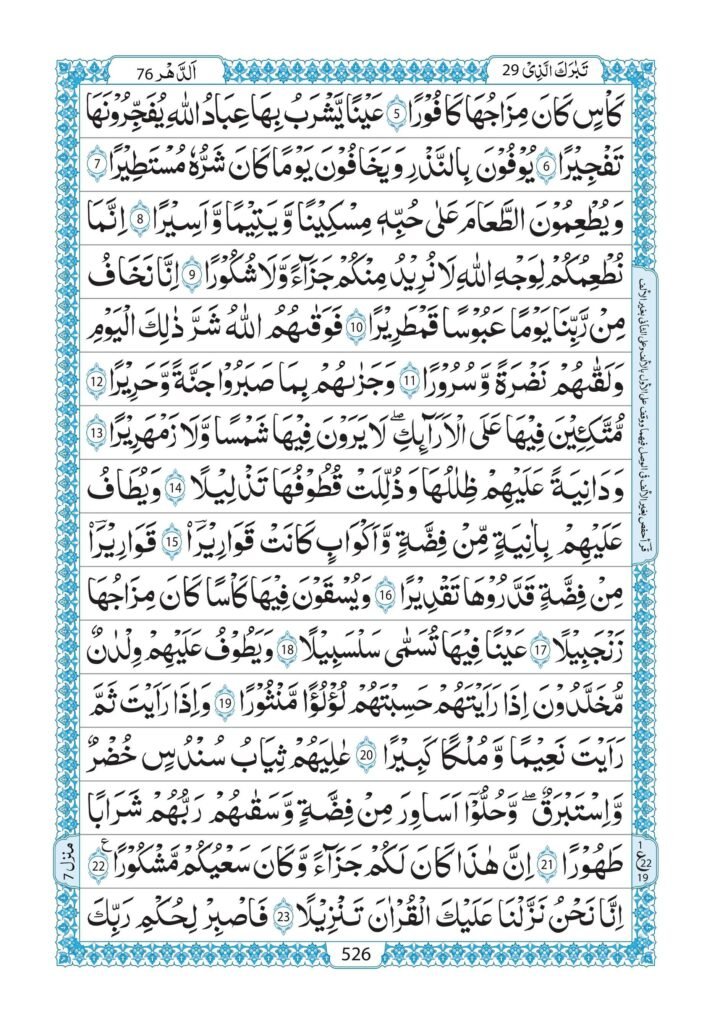 تَبٰرَكَ الَّذِیْ 29
اَلدَّهْر 76
كَاْسٍ كَانَ مِزَاجُهَا كَافُوْرًا 5 عَیْنًا یَّشْرَبُ بِهَا عِبَادُ اللّٰهِ یُفَجِّرُوْنَهَا
تَفْجِیْرًا 6 یُوْفُوْنَ بِالنَّذْرِ وَیَخَافُوْنَ یَوْمًا كَانَ شَرُّهٗ مُسْتَطِیْرًا 7
وَیُطْعِمُوْنَ الطَّعَامَ عَلٰی حُبِّهٖ مِسْكِیْنًا وَّیَتِیْمًا وَّاَسِیْرًا 8 اِنَّمَا
نُطْعِمُكُمْ لِوَجْهِ اللّٰهِ لَا نُرِیْدُ مِنْكُمْ جَزَآءً وَّلَا شُكُوْرًا 9 اِنَّا نَخَافُ
مِنْ رَّبِّنَا یَوْمًا عَبُوْسًا قَمْطَرِیْرًا 10 فَوَقٰىهُمُ اللّٰهُ شَرَّ ذٰلِكَ الْیَوْمِ
وَلَقّٰىهُمْ نَضْرَةً وَّسُرُوْرًا 11 وَجَزٰىهُمْ بِمَا صَبَرُوْا جَنَّةً وَّحَرِیْرًا 12
مُّتَّكِـِٕیْنَ فِیْهَا عَلَی الْاَرَآىِٕكِ ۚ لَا یَرَوْنَ فِیْهَا شَمْسًا وَّلَا زَمْهَرِیْرًا 13
وَدَانِیَةً عَلَیْهِمْ ظِلٰلُهَا وَذُلِّلَتْ قُطُوْفُهَا تَذْلِیْلًا 14 وَیُطَافُ
عَلَیْهِمْ بِاٰنِیَةٍ مِّنْ فِضَّةٍ وَّاَكْوَابٍ كَانَتْ قَوَارِیْرَا۠ 15 قَوَارِیْرَا۠
مِنْ فِضَّةٍ قَدَّرُوْهَا تَقْدِیْرًا 16 وَیُسْقَوْنَ فِیْهَا كَاْسًا كَانَ مِزَاجُهَا
زَنْجَبِیْلًا 17 عَیْنًا فِیْهَا تُسَمّٰی سَلْسَبِیْلًا 18 وَیَطُوْفُ عَلَیْهِمْ وِلْدَانٌ
مُّخَلَّدُوْنَ اِذَا رَاَیْتَهُمْ حَسِبْتَهُمْ لُؤْلُؤًا مَّنْثُوْرًا 19 وَاِذَا رَاَیْتَ ثَمَّ
رَاَیْتَ نَعِیْمًا وَّمُلْكًا كَبِیْرًا 20 عٰلِیَهُمْ ثِیَابُ سُنْدُسٍ خُضْرٌ
وَّاِسْتَبْرَقٌ ۖ وَّحُلُّوْۤا اَسَاوِرَ مِنْ فِضَّةٍ وَسَقٰىهُمْ رَبُّهُمْ شَرَابًا
طَهُوْرًا 21 اِنَّ هٰذَا كَانَ لَكُمْ جَزَآءً وَّكَانَ سَعْیُكُمْ مَّشْكُوْرًا 22 ع
اِنَّا نَحْنُ نَزَّلْنَا عَلَیْكَ الْقُرْاٰنَ تَنْزِیْلًا 23 فَاصْبِرْ لِحُكْمِ رَبِّكَ
قرأ حفص بغیر الالف فی الوصل فیهما ووقف علی الاول بالالف وعلی الثانی بغیر الالف
1
ع 22
19
منزل 7
526